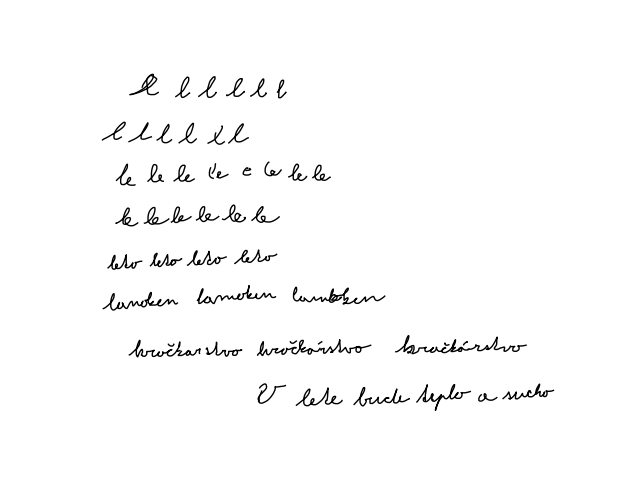 l l l l l l
l l l l l l
le le le le e le le le
le le le le le le
leto leto leto leto
lanoken lamoken
hračkárstvo hračkárstvo hračkárstvo
V lete bude teplo a sucho